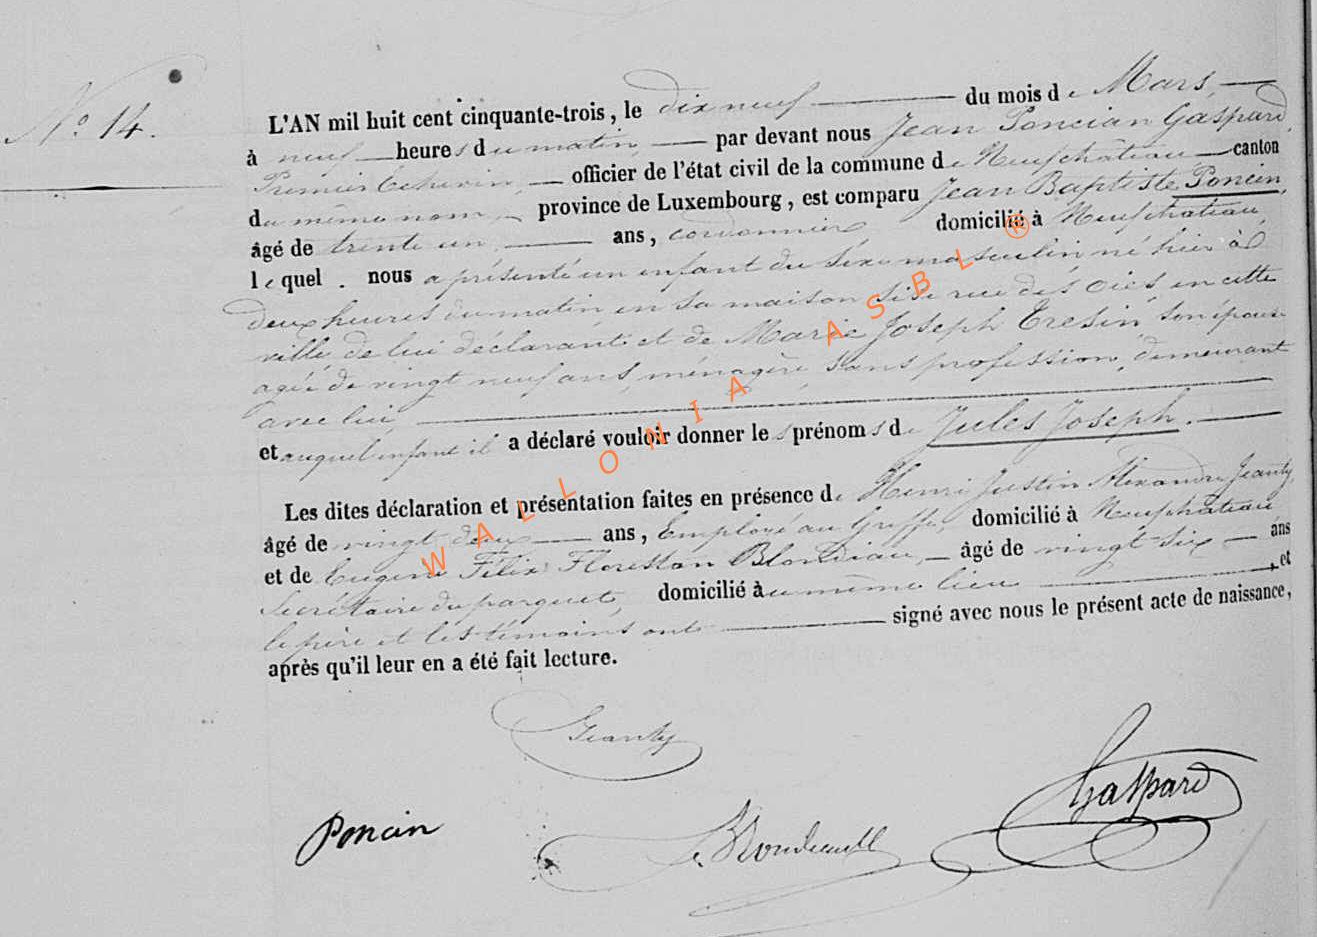 N.º 14.
L'AN mil huit cent cinquante-trois, le dix neuf du mois de Mars,
à neuf heures du matin, par devant nous Jean Poncian Gaspard,
Premier Echevin, officier de l'état civil de la commune de Neufchâteau canton
du même nom, province de Luxembourg, est comparu Jean Baptiste Poncin,
âgé de trente un ans, cordonnier domicilié à Neufchateau,
lequel nous a présenté un enfant du sexe masculin né hier à
deux heures du matin en sa maison sise rue des oies en cette
ville de lui déclarant et de Marie Joseph Tresin son épouse
agée de vingt neuf ans, ménagère sans profession, demeurant
avec lui,
et auquel enfant il a déclaré vouloir donner les prénoms de Jules Joseph.
Les dites déclaration et présentation faites en présence de Henri Justin Alexandre Jeanty,
âgé de vingt deux ans, Employé au Greffe, domicilié à Neufchâteau
et de Eugene Félix Florestan Blondiau, âgé de vingt six ans
Secrétaire du parquet, domicilié au même lieu, et
le père et les témoins ont signé avec nous le présent acte de naissance,
après qu'il leur en a été fait lecture.
Jeanty
Gaspard
Poncin
WALLONIA ASBL ®